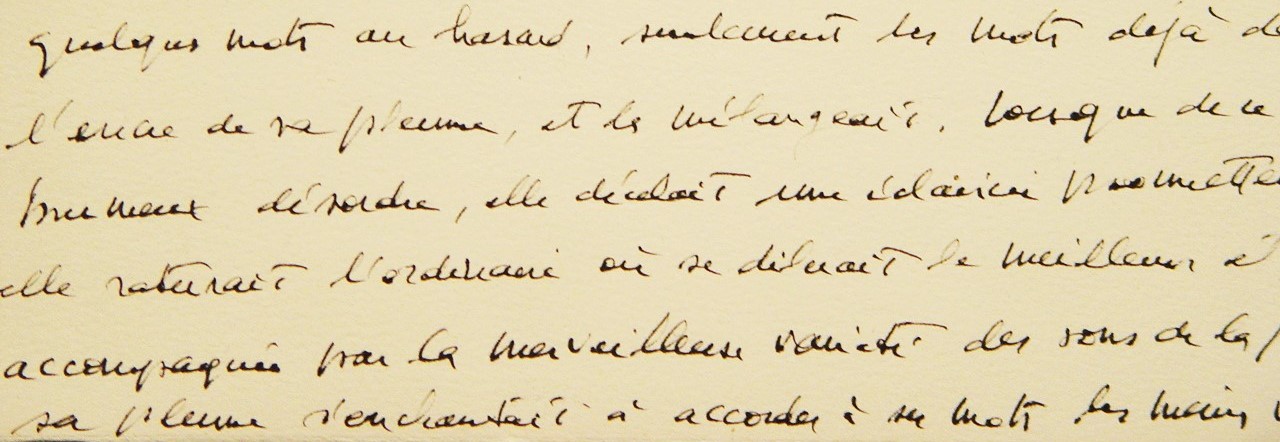 quelques mots au hasard, seulement les mots déjà de
l'encre de sa plume, et les mélangeait. Lorsque de ce
brumeux désordre, elle décelait une éclaircie promette
elle raturait l'ordinaire où se diluait le meilleur
accompagnée par la merveilleuse variété des sons de la
sa plume s'enchantait à accorder à ses mots les